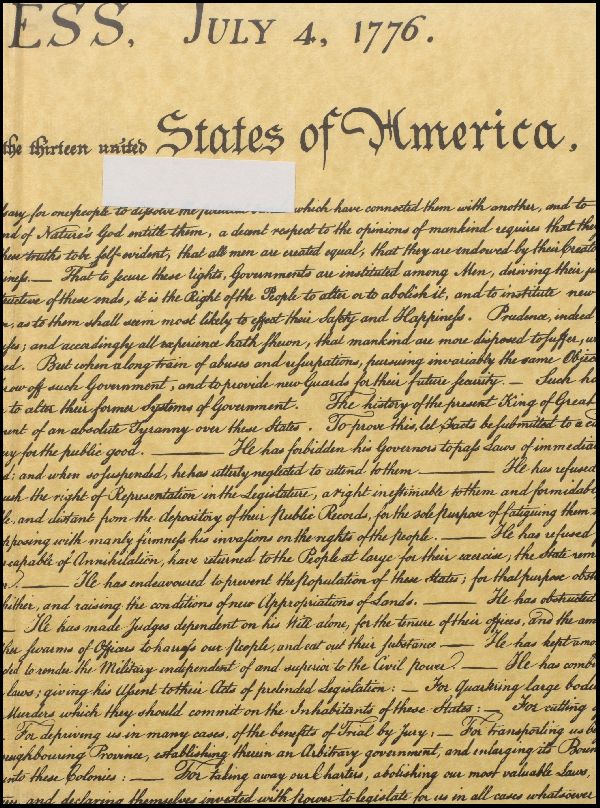 ESS, JULY 4, 1776.
the thirteen united States of America,
sary for one people to dissolve the which have connected them with another, and to
nd of Nature's God entitle them, a decent respect to the opinions of mankind requires that they
hese truths to be self-evident, that all men are created equal, that they are endowed by their Creato
iness.— That to secure these rights, Governments are instituted among Men, deriving their ju
tructive of these ends, it is the Right of the People to alter or to abolish it, and to institute new
m, as to them shall seem most likely to effect their Safety and Happiness. Prudence, indeed
ses; and accordingly all experience hath shewn, that mankind are more disposed to suffer, w
ed. But when a long train of abuses and usurpations, pursuing invariably the same Objec
row off such Government, and to provide new Guards for their future security.— Such ha
to alter their former Systems of Government. The history of the present King of Great
ment of an absolute Tyranny over these States. To prove this, let Facts be submitted to a ca
ary for the public good. —— He has forbidden his Governors to pass Laws of immedia
d; and when so suspended, he has utterly neglected to attend to them. —— He has refused
uish the right of Representation in the Legislature, a right inestimable to them and formidabl
le, and distant from the depository of their Public Records, for the sole purpose of fatiguing them
pposing with manly firmness his invasions on the rights of the people. —— He has refused
ncapable of Annihilation, have returned to the People at large for their exercise; the State rem
n. —— He has endeavoured to prevent the population of these States; for that purpose obst
hither, and raising the conditions of new Appropriations of Lands. —— He has obstructed
— He has made Judges dependent on his Will alone, for the tenure of their offices, and the am
her swarms of Officers to harrass our People, and eat out their substance —— He has kept amo
ded to render the Military independent of and superior to the Civil power. —— He has comb
laws; giving his Assent to their Acts of pretended Legislation: — For Quartering large bodi
Murders which they should commit on the Inhabitants of these States: — For cutting o
For depriving us in many cases, of the benefits of Trial by Jury: — For transporting us be
neighbouring Province, establishing therein an Arbitrary government, and enlarging its Boun
into these Colonies: — For taking away our Charters, abolishing our most valuable Laws,
and declaring themselves invested with power to legislate for us in all cases whatsoever